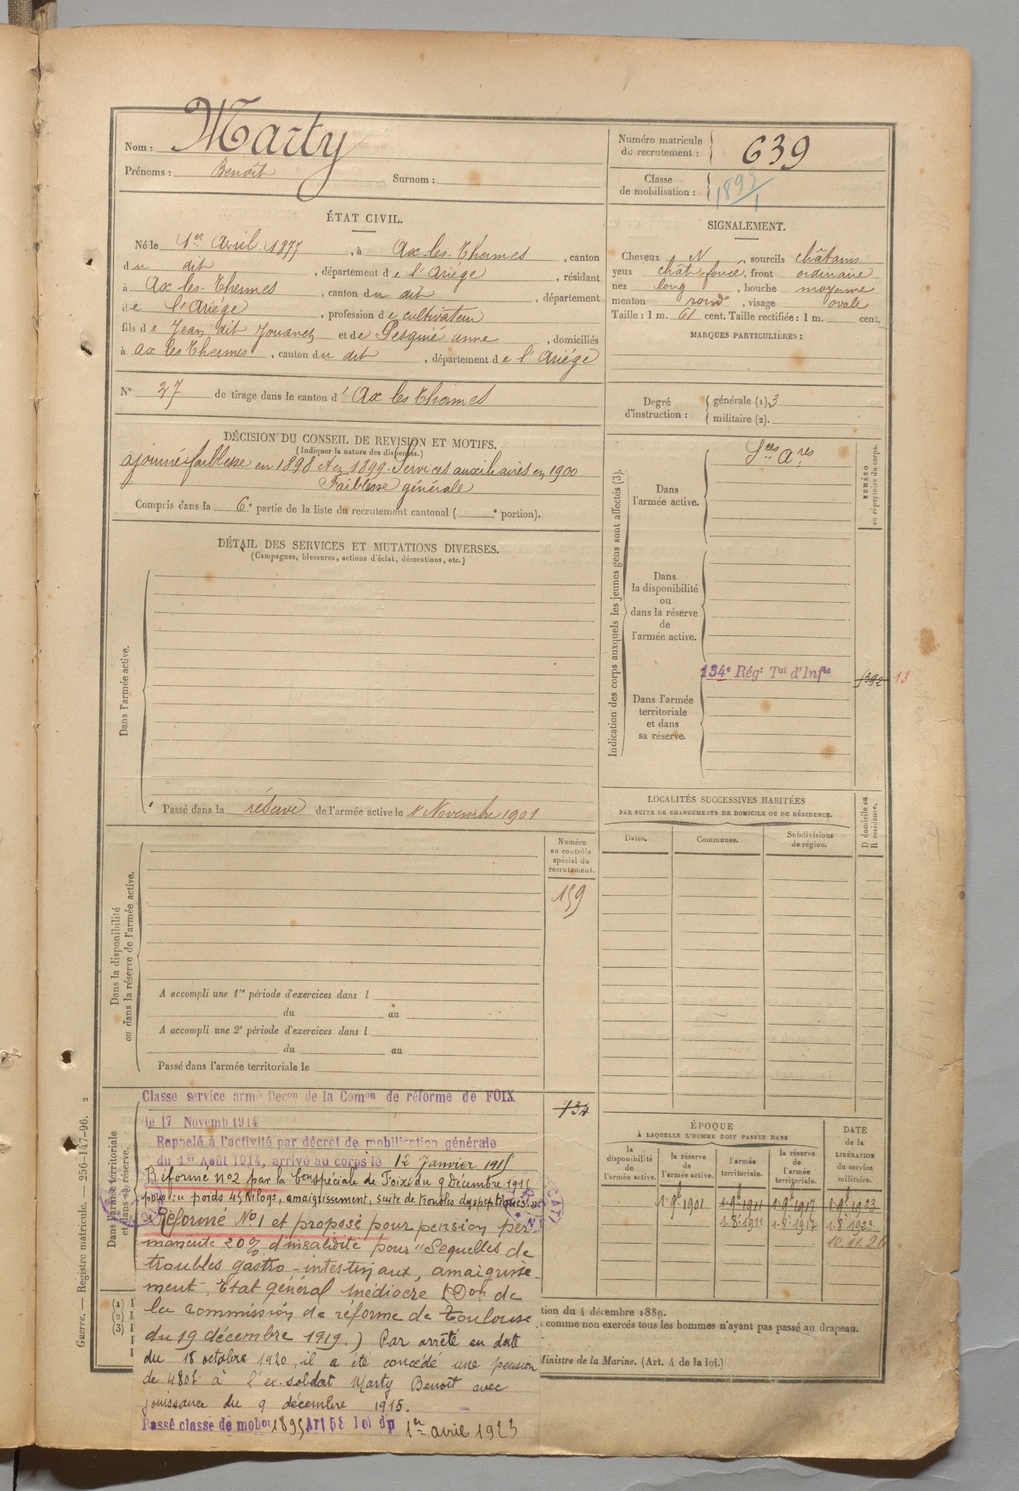 Nom : Marty
Prénoms : Benoît Surnom :
Numéro matricule du recrutement : 639
Classe de mobilisation :
ÉTAT CIVIL.
Né le 1er Avril 1877, à Ax les Thermes, canton
du dit, département de l'Ariége, résidant
à Ax les Thermes, canton du dit, département
de l'Ariége, profession de cultivateur
fils de Jean dit Jouanet et de anne, domiciliés
à ax les Thermes, canton du dit, département de l'Ariége
SIGNALEMENT.
Cheveux N, sourcils châtains
yeux chât foncé, front ordinaire
nez long, bouche moyenne
menton rond, visage ovale
Taille : 1 m. 61 cent. Taille rectifiée : 1 m. cent.
MARQUES PARTICULIÈRES :
N° 37 de tirage dans le canton d'Ax les Thermes
Degré d'instruction :
générale (1). 3
militaire (2).
DÉCISION DU CONSEIL DE REVISION ET MOTIFS.
(Indiquer la nature des dispenses.)
ajourné faiblesse en 1898 et en 1899. Services auxiliaires en 1900
Faiblesse générale
Compris dans la 6e partie de la liste du recrutement cantonal ( e portion).
DÉTAIL DES SERVICES ET MUTATIONS DIVERSES.
(Campagnes, blessures, actions d'éclat, décorations, etc.)
Dans l'armée active.
Passé dans la réserve de l'armée active le 1er Novembre 1901
Indication des corps auxquels les jeunes gens sont affectés (3).
NUMÉRO au répertoire du corps.
Dans l'armée active.
Sces Ares
Dans la disponibilité ou dans la réserve de l'armée active.
134e Régt Tal d'Infie
13
Dans l'armée territoriale et dans sa réserve.
LOCALITÉS SUCCESSIVES HABITÉES
PAR SUITE DE CHANGEMENTS DE DOMICILE OU DE RÉSIDENCE.
Dates.
Communes.
Subdivisions de région.
D domicile ou R résidence.
Dans la disponibilité ou dans la réserve de l'armée active.
Numéro au contrôle spécial du recrutement.
159
A accompli une 1re période d'exercices dans l
du au
A accompli une 2e période d'exercices dans l
du au
Passé dans l'armée territoriale le
Dans l'armée territoriale et dans sa réserve.
Classé service armé Décon de la Comon de réforme de FOIX
le 17 Novemb 1914
Rappelé à l'activité par décret de mobilisation générale
du 1er Août 1914, arrivé au corps le 12 Janvier 1915
Réformé n°2 par la Con spéciale de Foix du 9 décembre 1915
pour : poids 45 kilogs, amaigrissement, suite de troubles dyspeptiques
Réformé N°1 et proposé pour pension per-
manente 20% d'invalidité pour "Sequelles de
troubles gastro-intestinaux, amaigrisse-
ment, Etat général médiocre (Don de
la commission de réforme de Toulouse
du 19 décembre 1919.) Par arrêté en date
du 18 octobre 1920, il a été concédé une pension
de 480f à l'ex-soldat Marty Benoît avec
jouissance du 9 décembre 1915.
Passé classe de mobon 1895 Art 58 loi du 1er avril 1923
134
ÉPOQUE
À LAQUELLE L'HOMME DOIT PASSER DANS
la disponibilité de l'armée active.
la réserve de l'armée active.
l'armée territoriale.
la réserve de l'armée territoriale.
DATE de la LIBÉRATION du service militaire.
1-9bre 1901 1-9bre 1911 1-9bre 1917 1-9bre 1923
1.8.1911 1.8.1917 1.8.1923
(1)
(2)
(3)
tion du 4 décembre 1889.
comme non exercés tous les hommes n'ayant pas passé au drapeau.
Ministre de la Marine. (Art. 4 de la loi.)
Guerre. — Registre matricule. 256-147-96. 2